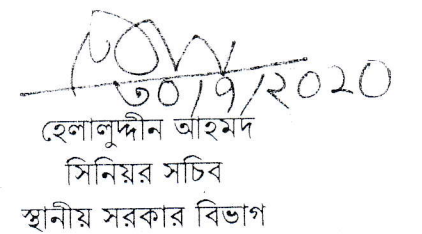 ৩০/৭/২০২০
হেলালুদ্দীন আহমদ
সিনিয়র সচিব
স্থানীয় সরকার বিভাগ